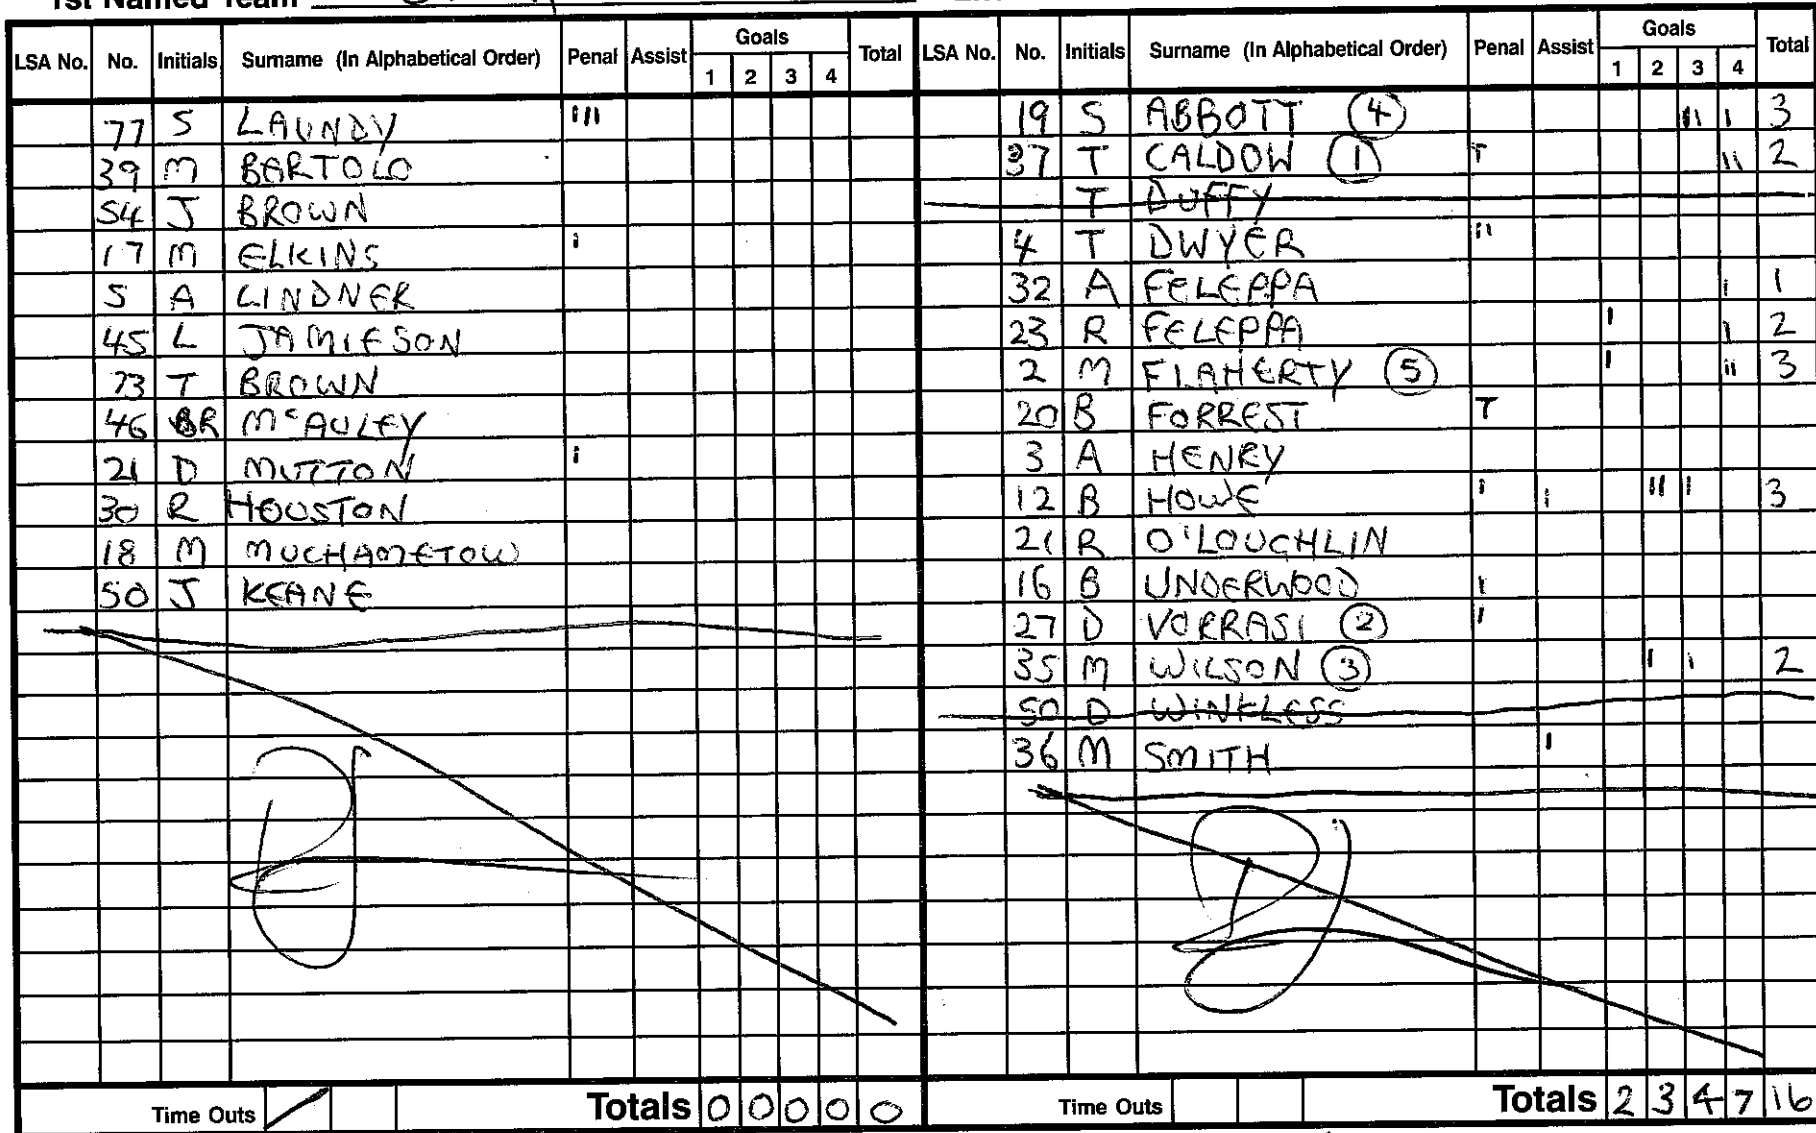 1st Named Team
LSA No. No. Initials Surname (In Alphabetical Order) Penal Assist Goals 1 2 3 4 Total
77 S LAUNDY III
39 M BARTOLO
54 J BROWN
17 M ELKINS I
5 A LINDNER
45 L JAMIESON
73 T BROWN
46 BR McAULEY
21 D MUTTON I
30 R HOUSTON
18 M MUCHAMETOW
50 J KEANE
Time Outs / Totals 0 0 0 0 0
LSA No. No. Initials Surname (In Alphabetical Order) Penal Assist Goals 1 2 3 4 Total
19 S ABBOTT (4) II I 3
37 T CALDOW (1) T II 2
T DUFFY
4 T DWYER II
32 A FELEPPA I 1
23 R FELEPPA I I 2
2 M FLAHERTY (5) I II 3
20 B FORREST T
3 A HENRY
12 B HOWE I I II I 3
21 R O'LOUGHLIN
16 B UNDERWOOD I
27 D VORRASI (2) I
35 M WILSON (3) I I 2
50 D WINKLESS
36 M SMITH I
Time Outs Totals 2 3 4 7 16